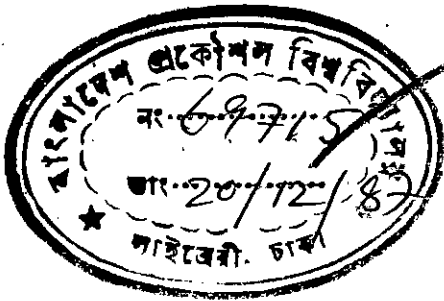 বাংলাদেশ প্রকৌশল বিশ্ববিদ্যালয়
নং..69715
তাং..20/12/82
লাইব্রেরী. ঢাকা